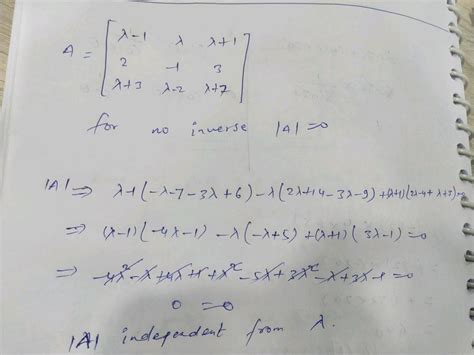 A = [ λ-1 λ λ+1
2 -1 3
λ+3 λ-2 λ+7 ]
for no inverse |A| = 0
|A| ⇒ λ-1(-λ-7-3λ+6) -λ(2λ+14-3λ-9) +(λ+1)(2λ-4+λ+3)=0
⇒ (λ-1)(-4λ-1) -λ(-λ+5) +(λ+1)(3λ-1)=0
⇒ -4λ²-λ+4λ+1+λ²-5λ+3λ²-λ+3λ-1=0
0 = 0
|A| independent from λ.